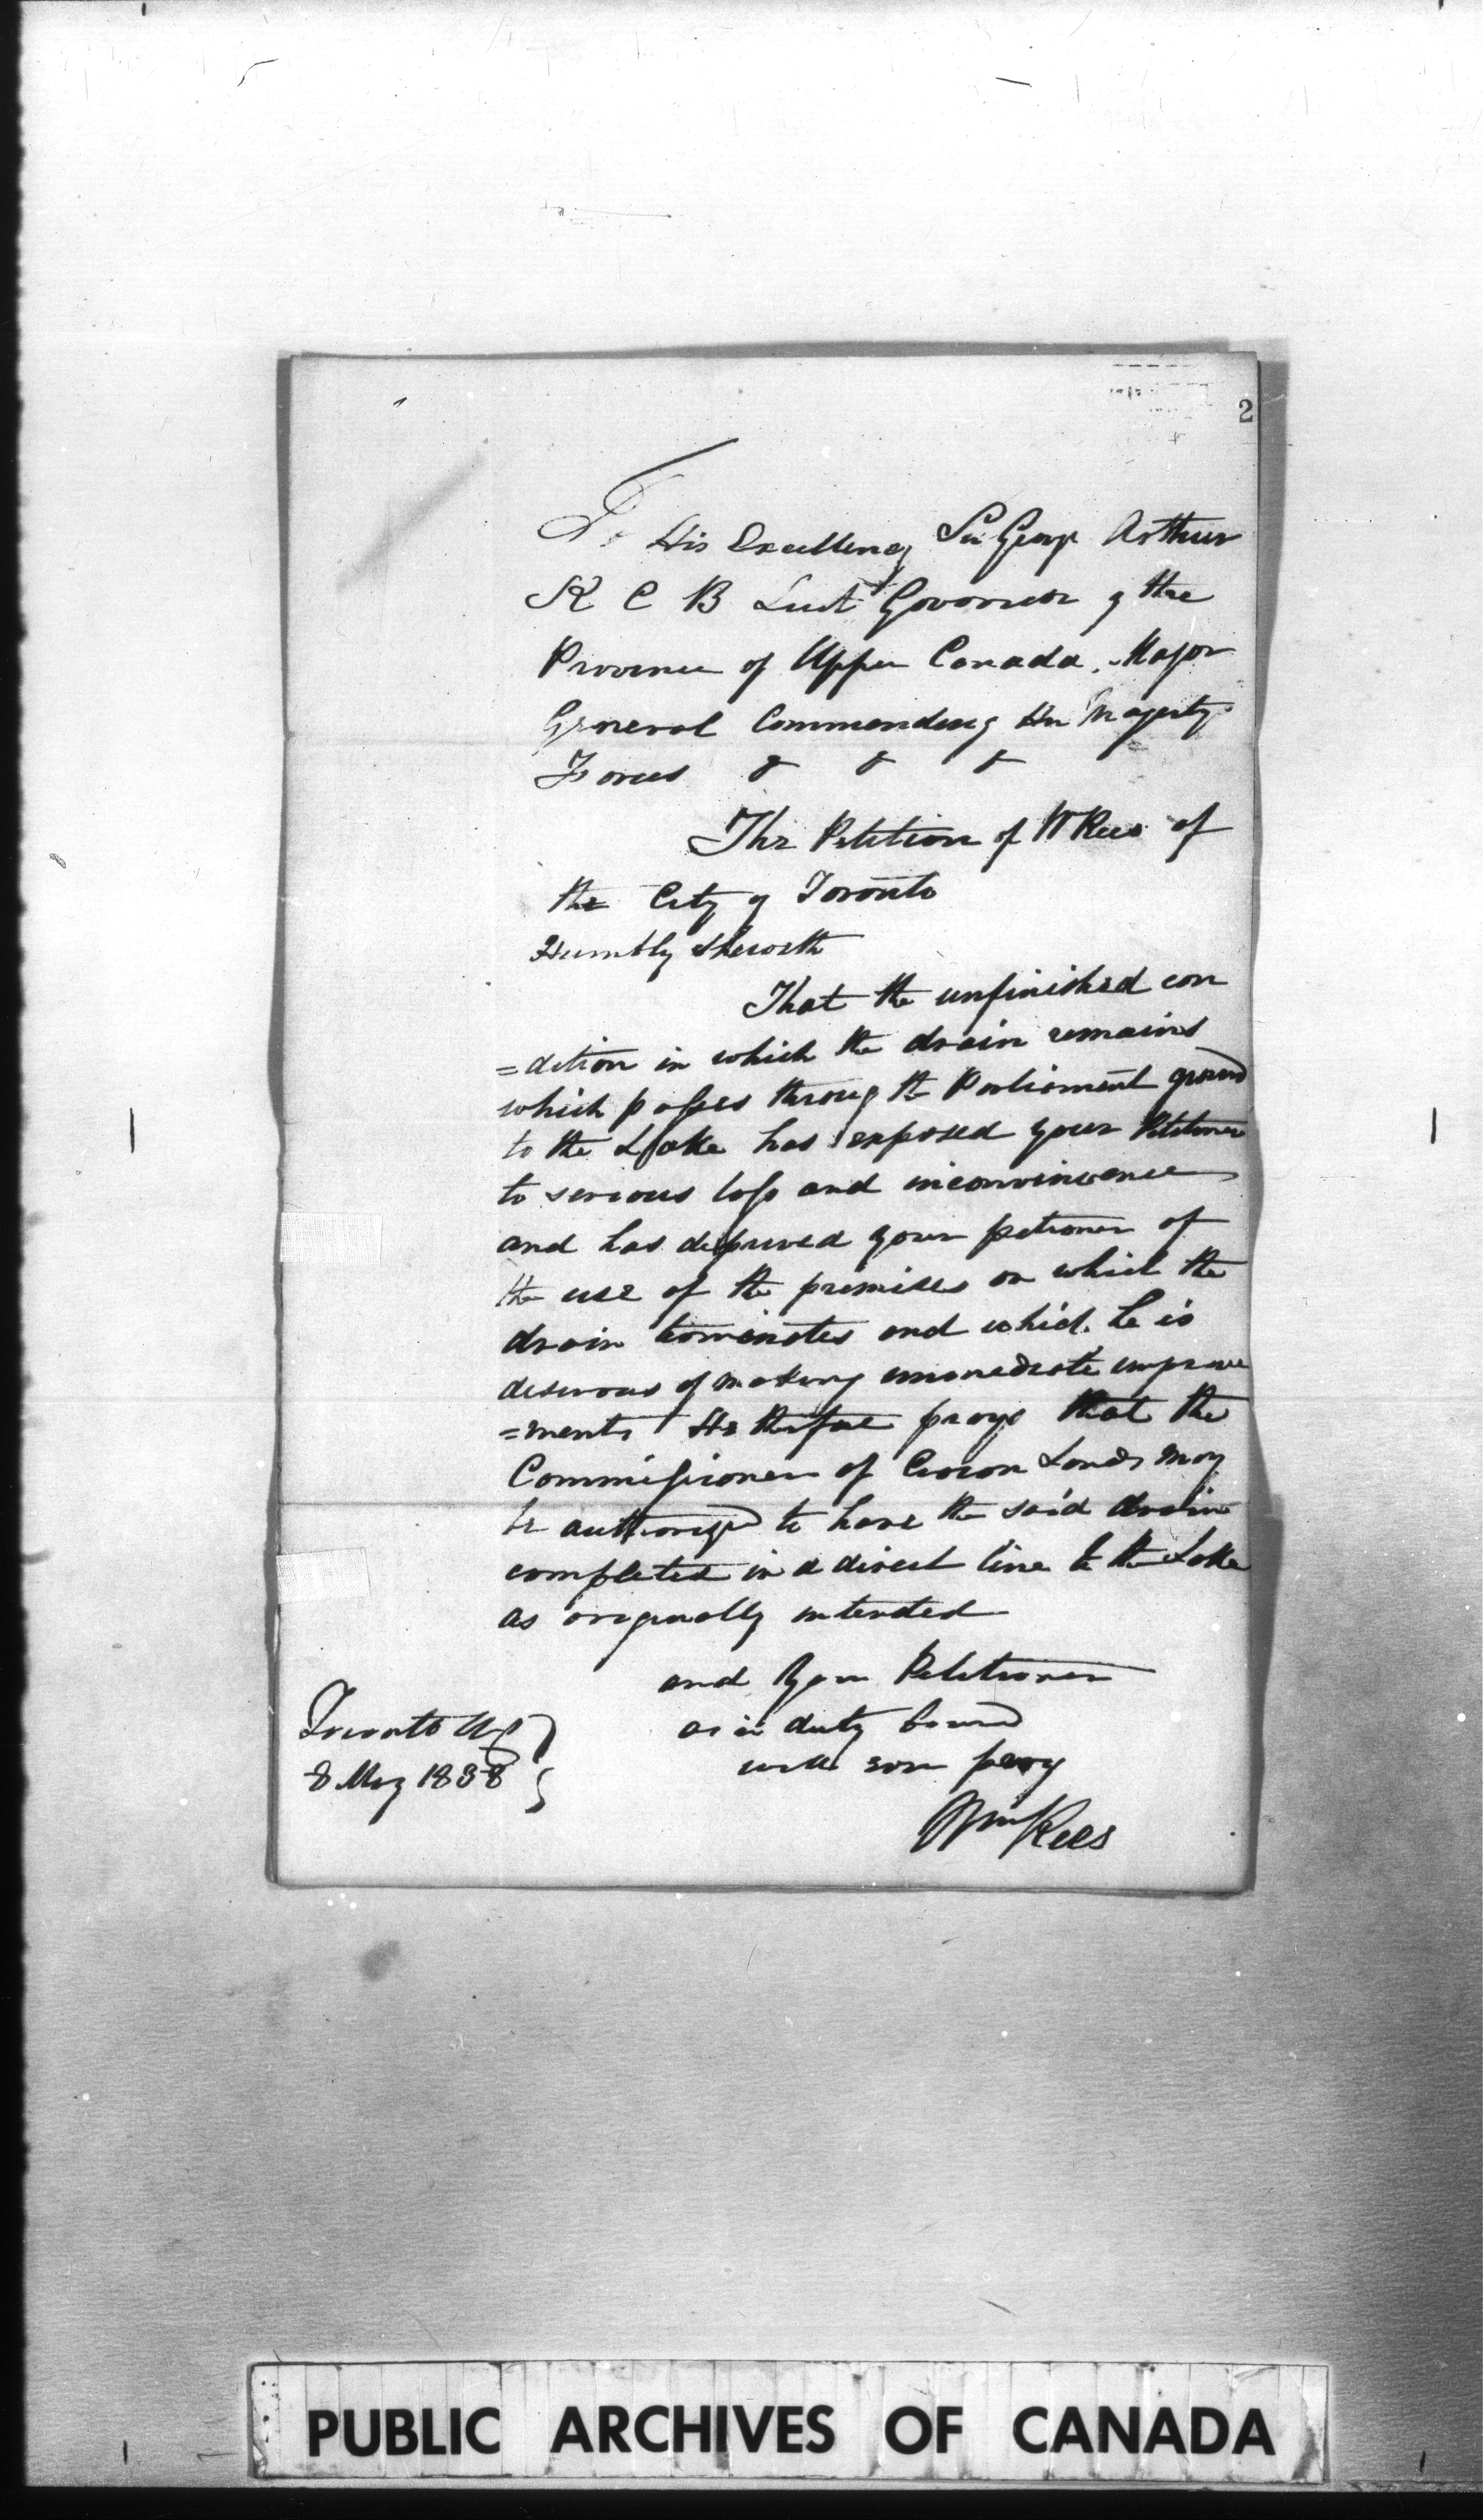 2
To His Excellency Sir George Arthur
K C B Lieut Governor of the
Province of Upper Canada, Major
General Commanding Her Majestys
Forces & & &
The Petition of W Rees of
the City of Toronto
Humbly Sheweth
That the unfinished con
=dition in which the drain remains
which passes throug the Parliament ground
to the Lake has exposed your Petitioner
to serious loss and inconvinience
and has deprived your petioner of
the use of the premises on which the
drain terminates and which he is
desirous of making immediate improve
=ments He therfore prays that the
Commissioner of Crown Lands may
be authorized to have the said drain
completed in a direct line to the Lake
as originally intended
and your Petitioner
as in duty bound
will ever pray
Wm Rees
Toronto UC
8 May 1838
PUBLIC ARCHIVES OF CANADA